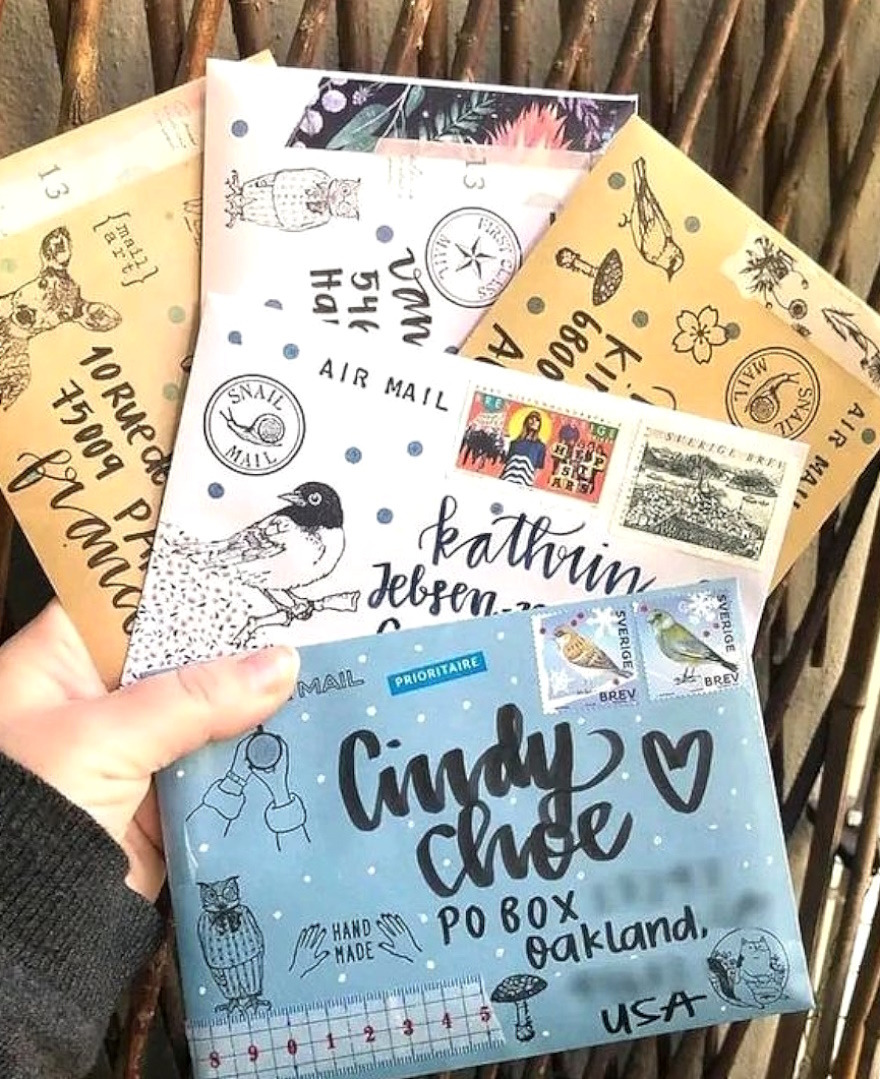 13
{mail
art}
10 Rue de
75009
13
FIRST CLASS
MAIL
Van
546
6800
AIR MAIL
SNAIL
MAIL
AIR MAIL
SNAIL
MAIL
SVERIGE
HEP
STARS
SVERIGE BREV
kathrin
Jebsen-
MAIL
PRIORITAIRE
SVERIGE
BREV
SVERIGE
BREV
Cindy
Choe
PO BOX
Oakland,
USA
HAND
MADE
8 9 0 1 2 3 4 5